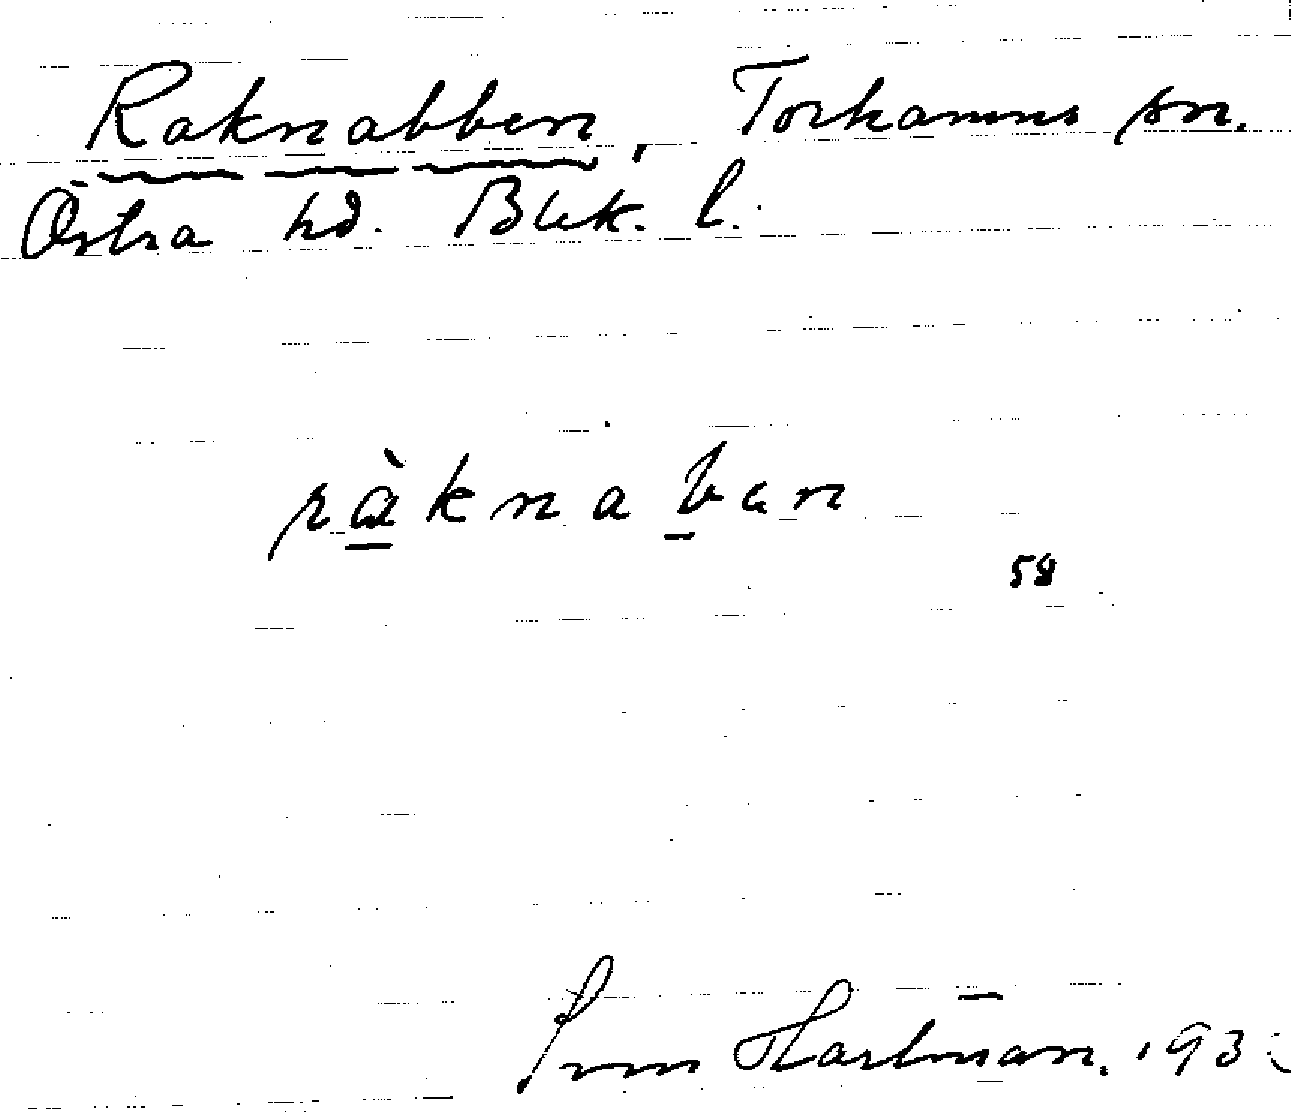 Raknabben, Torhamns sn.
Östra hd. Blek. l.
ràknaban
58
Hartman. 193